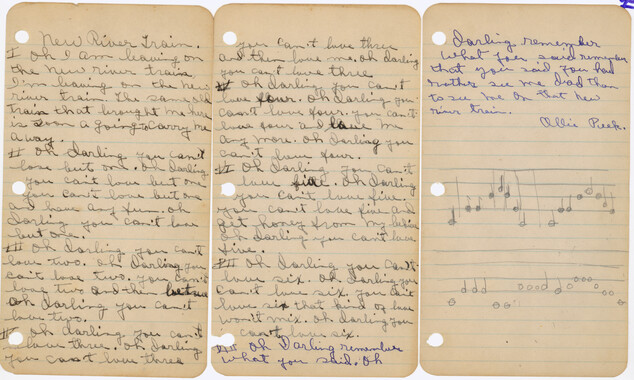 New River Train.
I Oh I am leaving on
the New river train
I'm leaving on the New
river train the same old
train that brought me here
is soon a going to carry me
away.
II Oh darling you can't
love but one. Oh darling
you can't love but one
you can't love but one
and have any fun. Oh
Darling you can't love
but one.
III Oh darling you can't
love two. oh darling you
can't love two. you can't
love two and then
oh darling you can't
love two.
oh darling you can't
love three. oh Darling
you can't love three
you can't love three
and then love me. oh darling
you can't love three
oh darling you can't
love four. oh darling you
can't love four. you can't
love four and love me
any more. oh Darling you
can't love four.
Oh Darling you can't
love five. oh Darling
you can't love five.
you can't love five and
get honey from my
Oh darling you can't love
five.
Oh darling you can't
love six. oh Darling you
can't love six. you can't
love six that kind of love
won't mix. oh darling you
can't love six.
Oh Darling remember
what you said. Oh
Darling remember
what you said remember
that you said you had
rather see me dead than
to see me on that new
river train.
Ollie Peek.